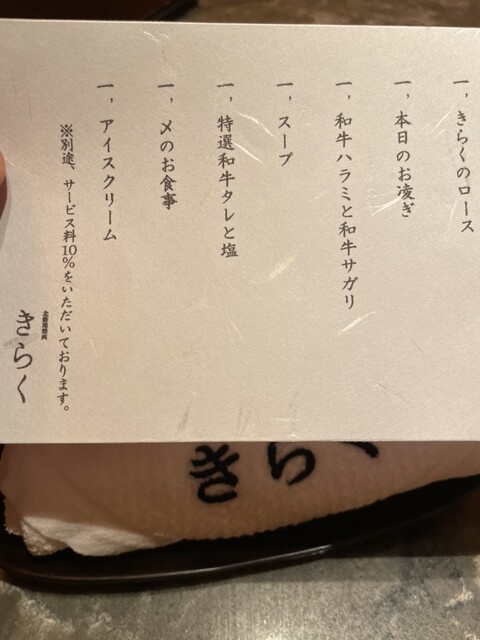 一，きらくのロース
一，本日のお凌ぎ
一，和牛ハラミと和牛サガリ
一，スープ
一，特選和牛タレと塩
一，〆のお食事
一，アイスクリーム
※別途、サービス料10%をいただいております。
きらく
きらく